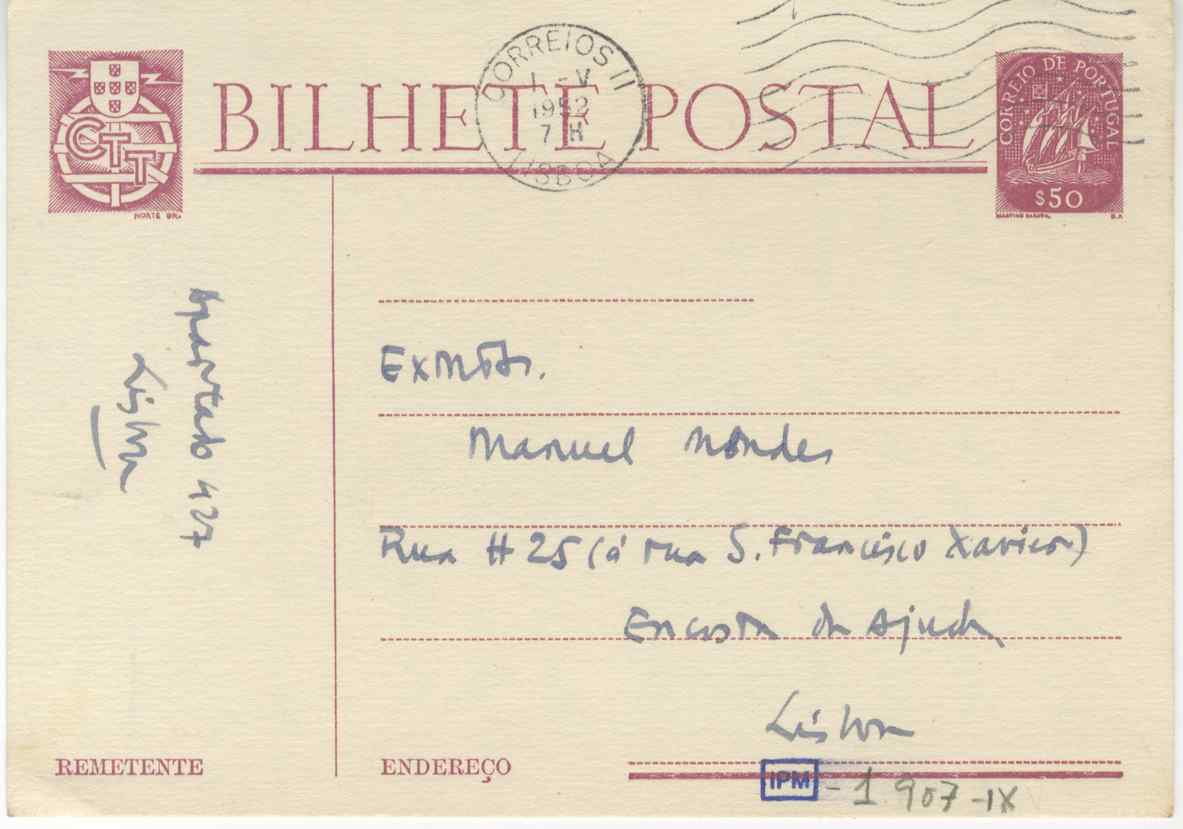 CORREIOS II
1 - V
1952
7 H
LISBOA
CTT
NORTE GR.
BILHETE POSTAL
CORREIO DE PORTUGAL
$50
Apartado 427
Lisboa
Manuel Mendes
Rua H 25 (á rua S. Francisco Xavier)
Encosta da Ajuda
Lisboa
REMETENTE
ENDEREÇO
IPM - 1 907 - IX